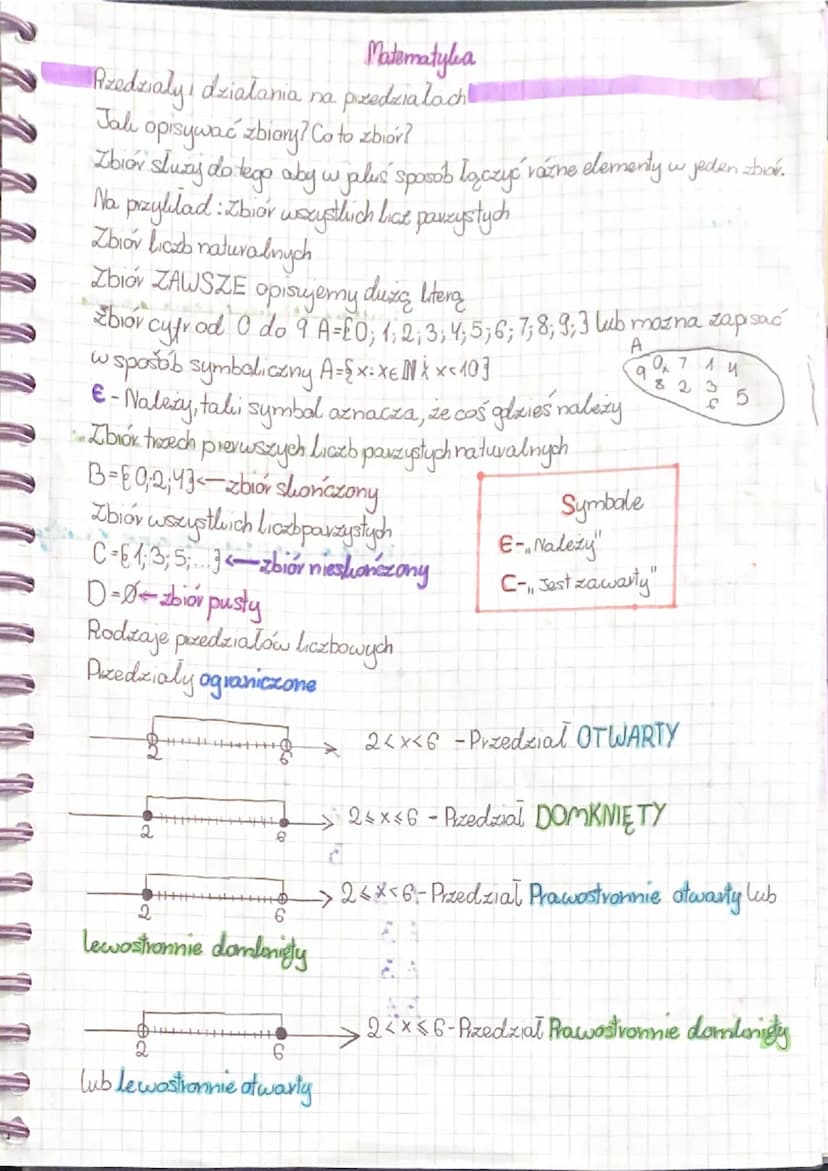 Matematyka
Przedziały i działania na przedziałach
Jak opisywać zbiory? Co to zbiór?
Zbiór służy do tego aby w jakiś sposób łączyć różne elementy w jeden zbiór.
Na przykład: Zbiór wszystkich licz parzystych
Zbiór liczb naturalnych
Zbiór ZAWSZE opisujemy dużą literą
zbiór cyfr od 0 do 9 A={0; 1; 2; 3; 4; 5; 6; 7; 8; 9; } lub można zapisać
w sposób symboliczny A={x: x∈ℕ i x<10}
A
9 0, 7 1 4
8 2 3 5
6
∈ - Należy, taki symbol oznacza, że coś gdzieś należy
Zbiór trzech pierwszych liczb parzystych naturalnych
B={0;2;4}← zbiór skończony
Zbiór wszystkich liczb parzystych
C={1;3;5;...}← zbiór nieskończony
D=∅← zbiór pusty
Symbole
∈-„Należy"
⊂-„Jest zawarty"
Rodzaje przedziałów liczbowych
Przedziały ograniczone
2 6 2<x<6 - Przedział OTWARTY
2 6 2⩽x⩽6 - Przedział DOMKNIĘTY
2 6 2⩽x<6 - Przedział Prawostronnie otwarty lub
lewostronnie domknięty
2 6 2<x⩽6 - Przedział Prawostronnie domknięty
lub lewostronnie otwarty